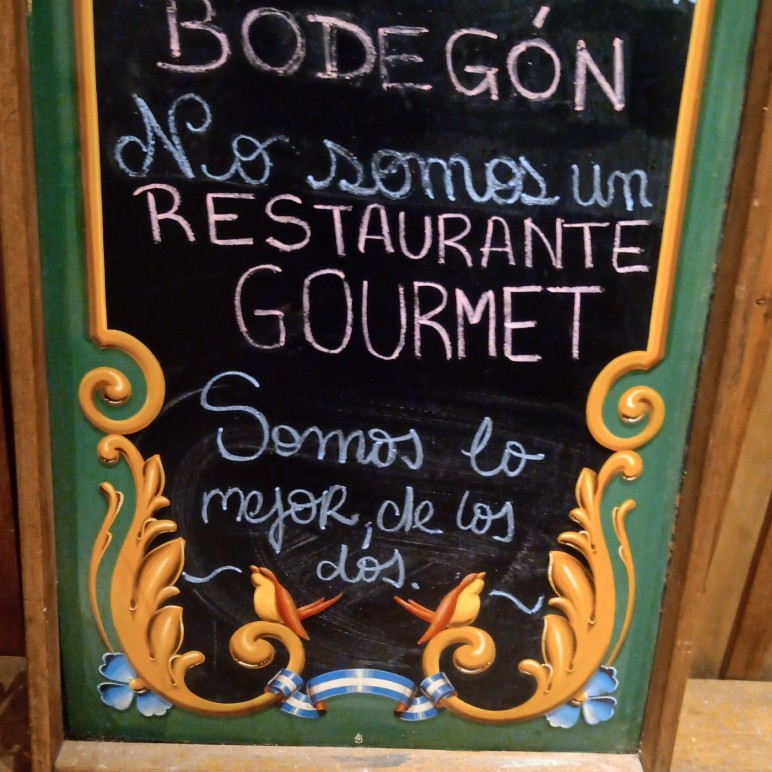 BODEGÓN
No somos un
RESTAURANTE
GOURMET
Somos lo
mejoR, de los
dos.